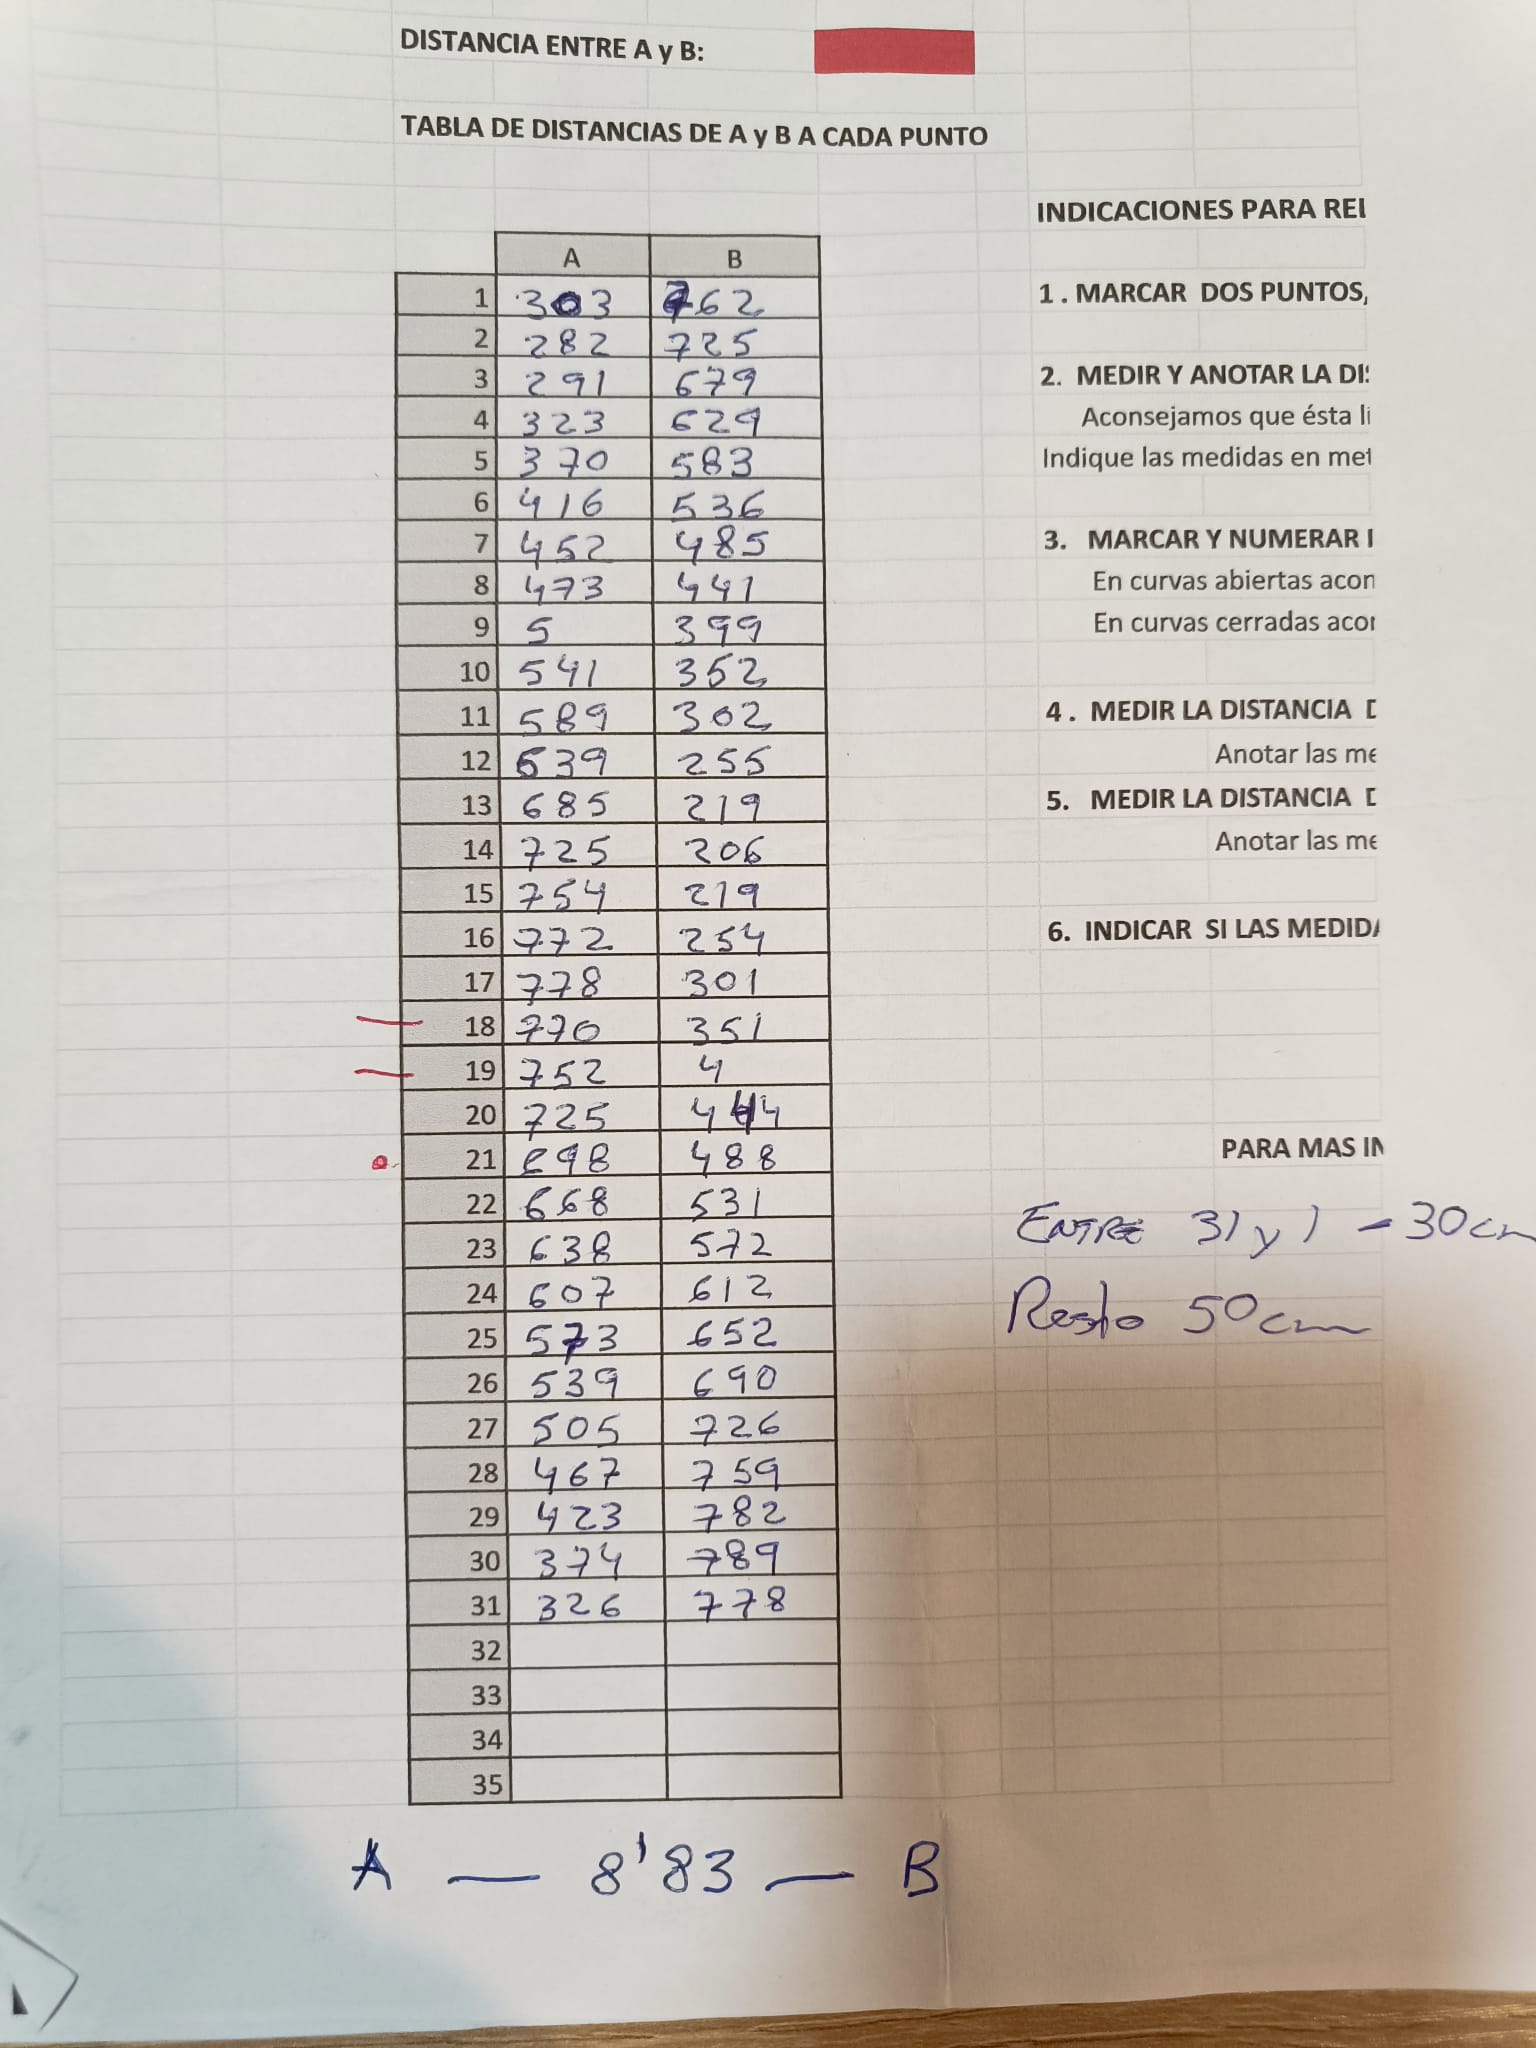 DISTANCIA ENTRE A y B:
TABLA DE DISTANCIAS DE A y B A CADA PUNTO
A B
1 303 762
2 282 725
3 291 679
4 323 629
5 370 583
6 416 536
7 452 485
8 473 441
9 5 399
10 541 352
11 589 302
12 639 255
13 685 219
14 725 206
15 754 219
16 772 254
17 778 301
18 770 351
19 752 4
20 725 444
21 698 488
22 668 531
23 638 572
24 607 612
25 573 652
26 539 690
27 505 726
28 467 759
29 423 782
30 374 789
31 326 778
32
33
34
35
A — 8'83 — B
INDICACIONES PARA REL
1 . MARCAR DOS PUNTOS,
2. MEDIR Y ANOTAR LA DIS
Aconsejamos que ésta li
Indique las medidas en met
3. MARCAR Y NUMERAR
En curvas abiertas acon
En curvas cerradas acon
4 . MEDIR LA DISTANCIA D
Anotar las me
5. MEDIR LA DISTANCIA D
Anotar las me
6. INDICAR SI LAS MEDIDA
PARA MAS IN
ENTRE 31 y 1 - 30cm
Resto 50cm